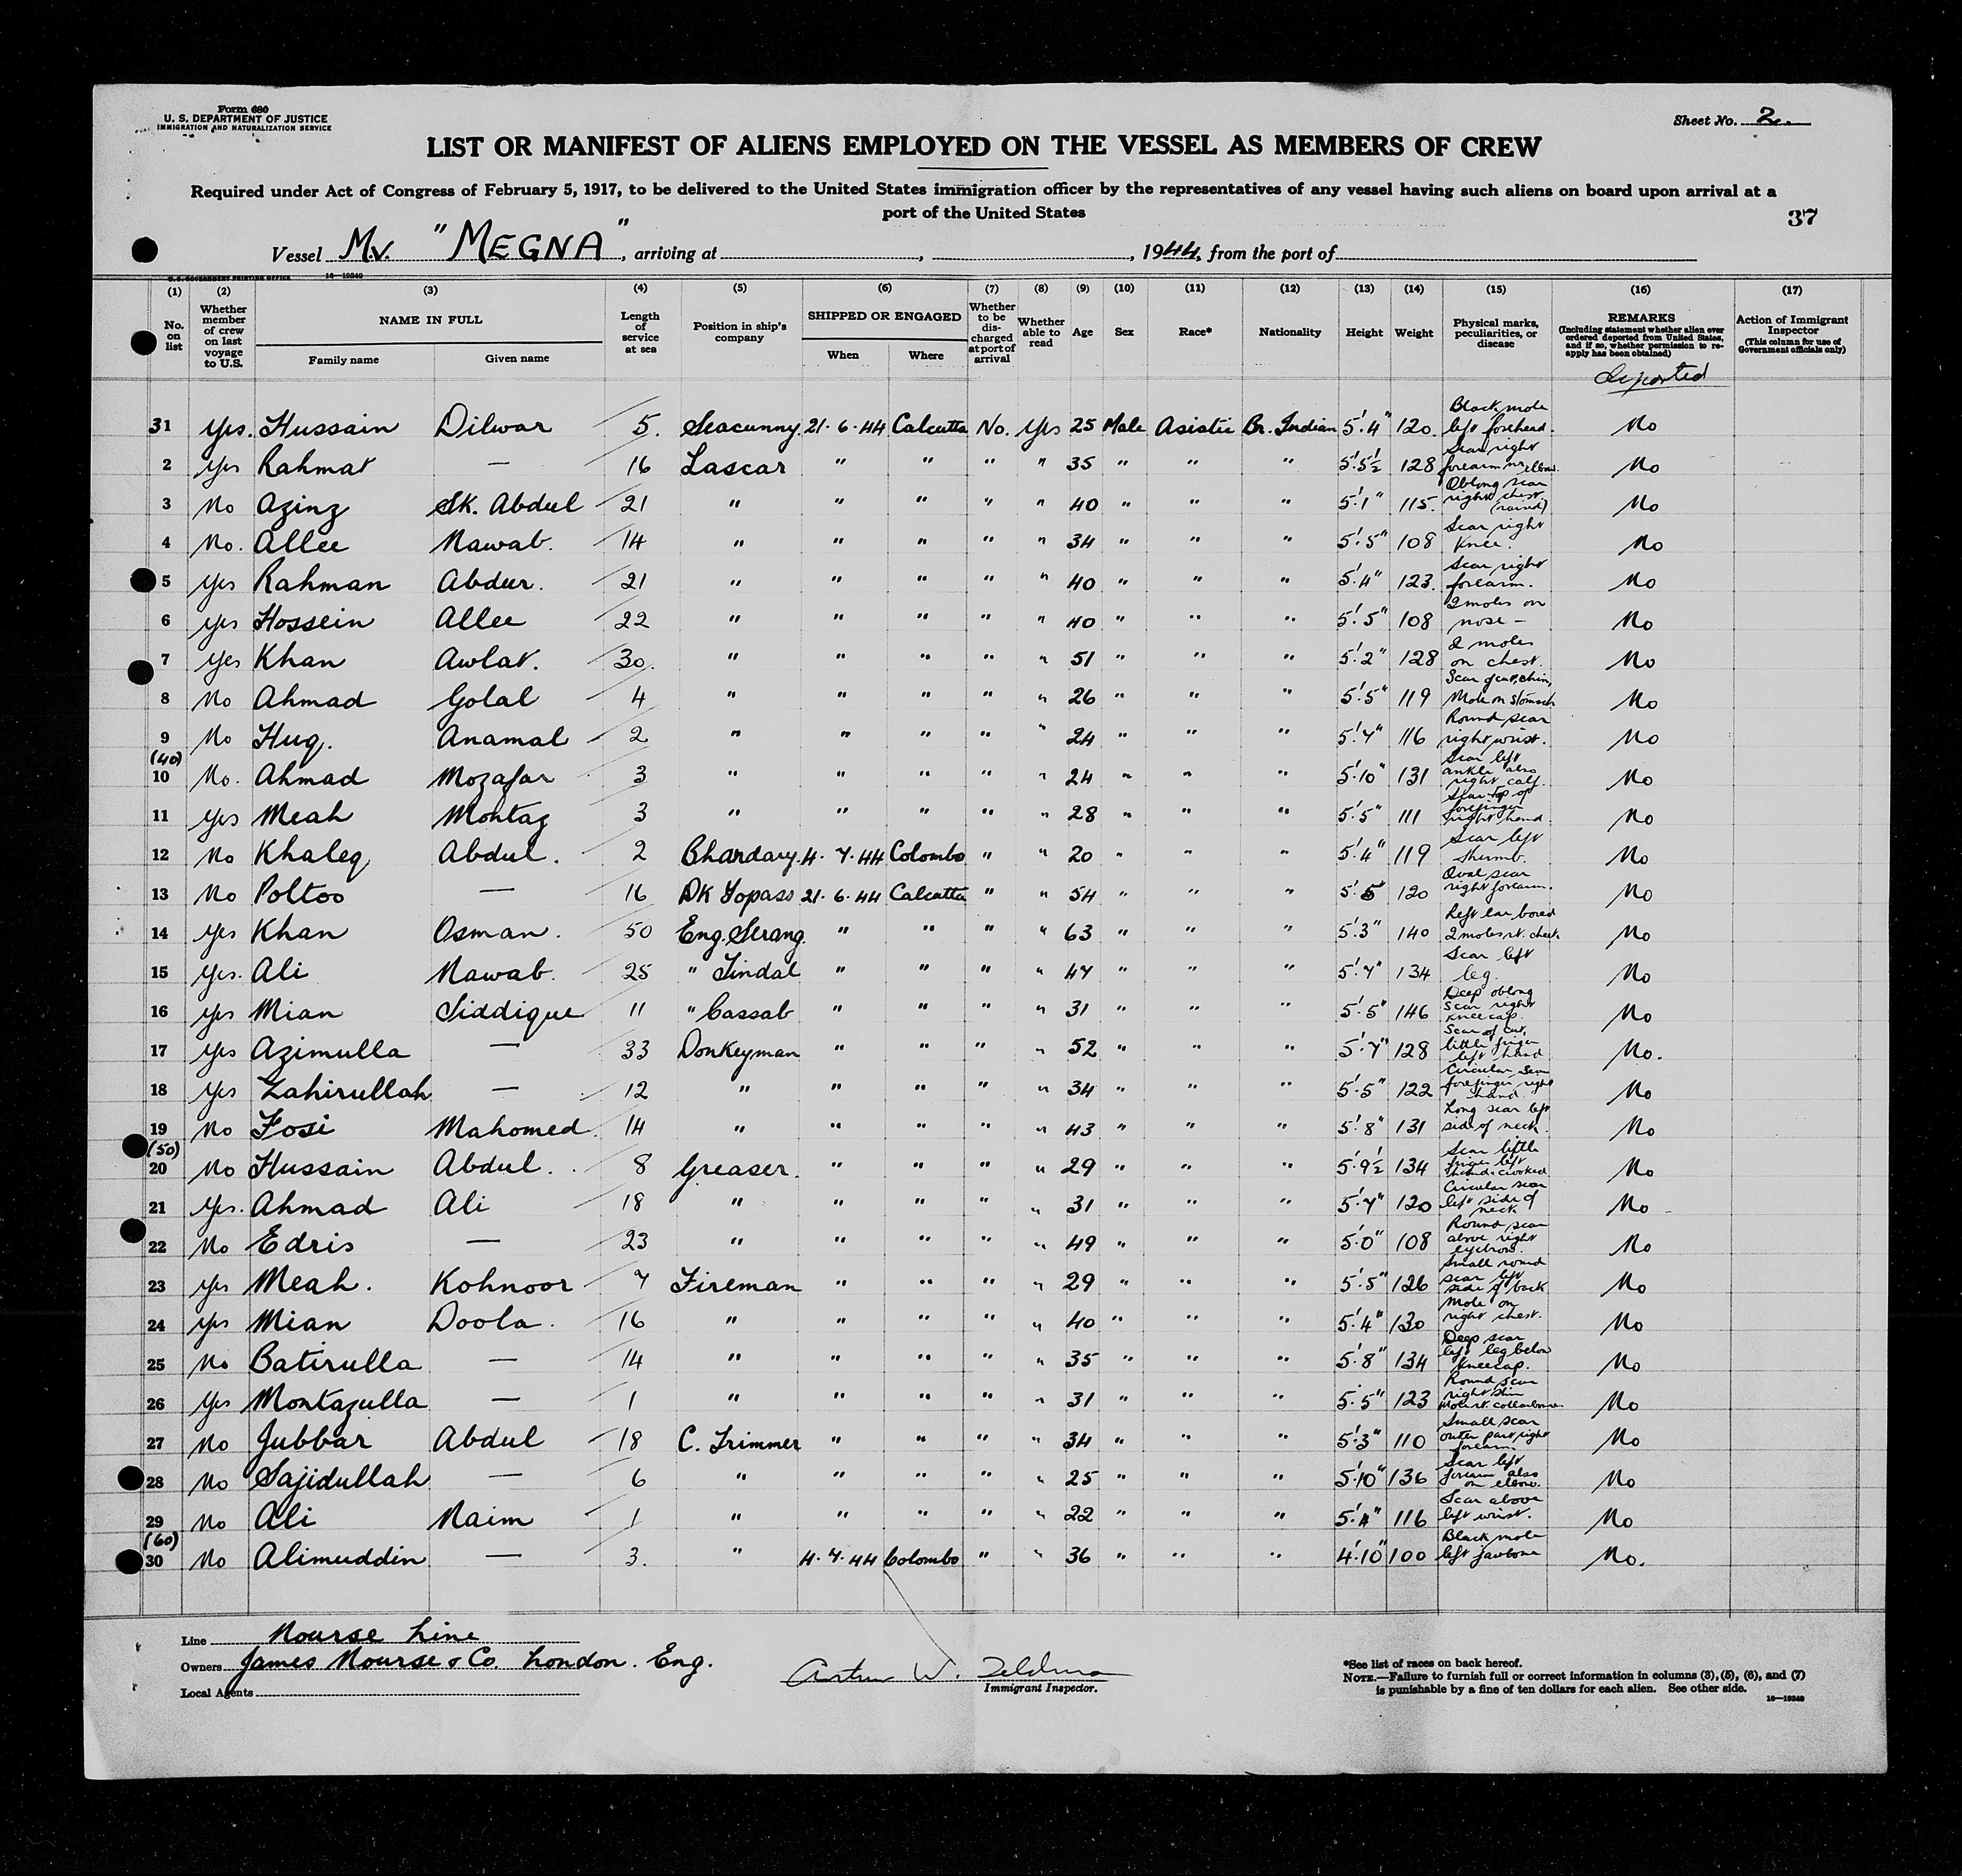 Form 680
U. S. DEPARTMENT OF JUSTICE
IMMIGRATION AND NATURALIZATION SERVICE
Sheet No. 2.
LIST OR MANIFEST OF ALIENS EMPLOYED ON THE VESSEL AS MEMBERS OF CREW
Required under Act of Congress of February 5, 1917, to be delivered to the United States immigration officer by the representatives of any vessel having such aliens on board upon arrival at a
port of the United States
37
Vessel M.V. "MEGNA", arriving at , , 1944, from the port of
U. S. GOVERNMENT PRINTING OFFICE 16—19349
(1) (2) (3) (4) (5) (6) (7) (8) (9) (10) (11) (12) (13) (14) (15) (16) (17)
No. on list Whether member of crew on last voyage to U.S. NAME IN FULL Family name Given name Length of service at sea Position in ship's company SHIPPED OR ENGAGED When Where Whether to be discharged at port of arrival Whether able to read Age Sex Race* Nationality Height Weight Physical marks, peculiarities, or disease REMARKS (Including statement whether alien ever ordered deported from United States, and if so, whether permission to reapply has been obtained) Action of Immigrant Inspector (This column for use of Government officials only)
Deported
31 Yes. Hussain Dilwar 5. Seacunny. 21.6.44 Calcutta No. Yes 25 Male Asiatic Br. Indian 5'.4" 120. Black mole left forehead. No
2 Yes Rahmat — 16 Lascar " " " " 35 " " " 5'.5½ 128 Scar right forearm nr elbow. No
3 No Azinz Sk. Abdul 21 " " " " " 40 " " " 5'.1" 115. Oblong scar right chest (raised) No
4 No. Allee Nawab. 14 " " " " " 34 " " " 5'.5" 108 Scar right knee. No
5 yes Rahman Abdur. 21 " " " " " 40 " " " 5'.4" 123. Scar right forearm. No
6 yes Hossein Allee 22 " " " " " 40 " " " 5'.5" 108 2 moles on nose – No
7 yes Khan Awlat. 30. " " " " " 51 " " " 5'.2" 128 2 moles on chest. No
8 No Ahmad Golal 4 " " " " " 26 " " " 5'.5" 119 Scar of cut, chin, Mole on stomach No
9 No Huq. Anamal 2 " " " " " 24 " " " 5'.7" 116 Round scar right wrist. No
(40)
10 No. Ahmad Mozafar 3 " " " " " 24 " " " 5'.10" 131 Scar left ankle also right calf. No
11 yes Meah Montaz 3 " " " " " 28 " " " 5'.5" 111 Scar top of forefinger right hand No
12 No Khaleq Abdul. 2 Bhandary. 4.7.44 Colombo " " 20 " " " 5'.4" 119 Scar left thumb. No
13 No Poltoo — 16 DK Topass 21.6.44 Calcutta " " 54 " " " 5'.5" 120 Oval scar right forearm. No
14 yes Khan Osman. 50 Eng. Serang. " " " " 63 " " " 5'.3" 140 Left ear bored 2 moles rt. cheek No
15 yes. Ali Nawab. 25 " Tindal " " " " 47 " " " 5'.7" 134 Scar left leg. No
16 yes Mian Siddique 11 " Cassab " " " " 31 " " " 5'.5" 146 Deep oblong scar right kneecap. No
17 yes Azimulla — 33 Donkeyman " " " " 52 " " " 5'.7" 128 Scar of cut, little finger left hand No.
18 yes Zahirullah — 12 " " " " " 34 " " " 5'.5" 122 Circular scar forefinger right hand No
19 No Fosi Mahomed. 14 " " " " " 43 " " " 5'.8" 131 Long scar left side of neck. No
(50)
20 No Hussain Abdul. 8 Greaser. " " " " 29 " " " 5'.9½ 134 Scar little finger left hand. crooked No
21 yes. Ahmad Ali 18 " " " " " 31 " " " 5'.7" 120 Circular scar left side of neck No
22 No Edris — 23 " " " " " 49 " " " 5'.0" 108 Round scar above right eyebrow. No
23 yes Meah. Kohnoor 7 Fireman " " " " 29 " " " 5'.5" 126 Small round scar left side of back No
24 yes Mian Doola. 16 " " " " " 40 " " " 5'.4" 130 Mole on right chest. No
25 No Batirulla — 14 " " " " " 35 " " " 5'.8" 134 Deep scar left leg below kneecap. No
26 yes Montazulla — 1 " " " " " 31 " " " 5.5" 123 Round scar right shin Mole rt. collarbone No
27 No Jubbar Abdul 18 C. Trimmer " " " " 34 " " " 5'.3" 110 Small scar outer part right forearm No
28 No Sajidullah — 6 " " " " " 25 " " " 5'.10" 136 Scar left forearm also on elbow. No
29 No Ali Naim 1 " " " " " 22 " " " 5'.4" 116 Scar above left wrist. No
(60)
30 No Alimuddin — 3. " 4.7.44 Colombo " " 36 " " " 4'.10" 100 Black mole left jawbone No.
Line Nourse Line
Owners James Nourse & Co. London. Eng.
Local Agents
Arthur W.
Immigrant Inspector.
*See list of races on back hereof.
NOTE.—Failure to furnish full or correct information in columns (3), (5), (6), and (7)
is punishable by a fine of ten dollars for each alien. See other side.
16—19349